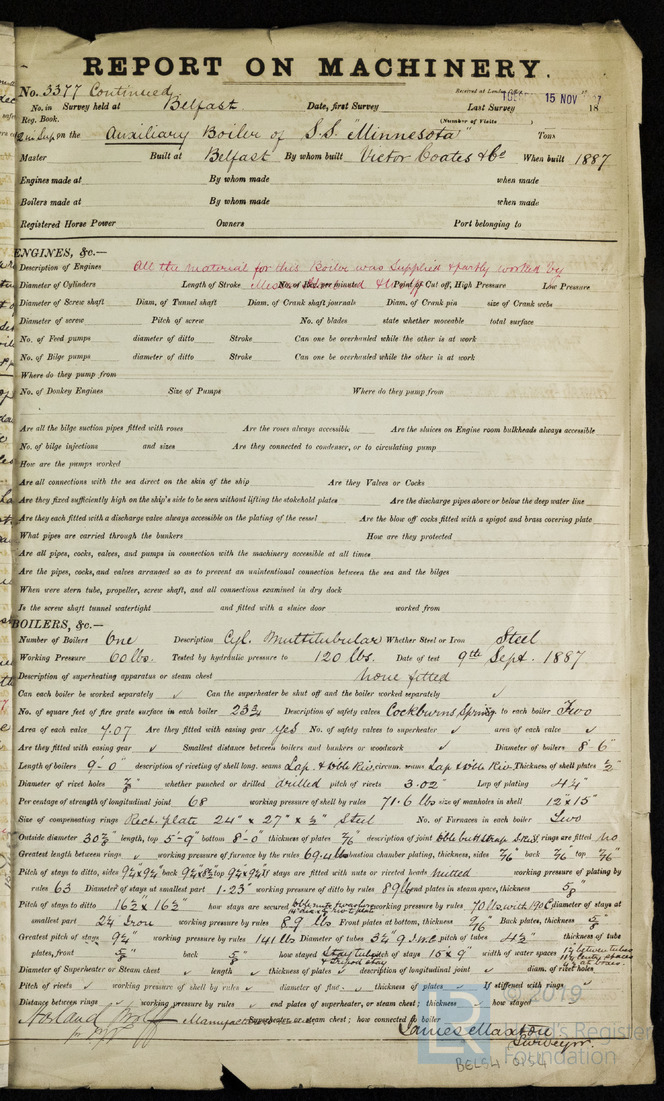 REPORT ON MACHINERY.
No. 3377 Continued
Received at London Office 15 NOV 18
No. in Survey held at Belfast Date, first Survey Last Survey
Reg. Book. (Number of Visits )
2 in Sup on the Auxiliary Boiler of S.S. "Minnesota" Tons
Master Built at Belfast By whom built Victor Coates & Co When built 1887
Engines made at By whom made when made
Boilers made at By whom made when made
Registered Horse Power Owners Port belonging to
ENGINES, &c.—
Description of Engines All the material for this Boiler was Supplied & partly worked by
Diameter of Cylinders Length of Stroke No. of Rev. per minute Point of Cut off, High Pressure Low Pressure
Diameter of Screw shaft Diam. of Tunnel shaft Diam. of Crank shaft journals Diam. of Crank pin size of Crank webs
Diameter of screw Pitch of screw No. of blades state whether moveable total surface
No. of Feed pumps diameter of ditto Stroke Can one be overhauled while the other is at work
No. of Bilge pumps diameter of ditto Stroke Can one be overhauled while the other is at work
Where do they pump from
No. of Donkey Engines Size of Pumps Where do they pump from
Are all the bilge suction pipes fitted with roses Are the roses always accessible Are the sluices on Engine room bulkheads always accessible
No. of bilge injections and sizes Are they connected to condenser, or to circulating pump
How are the pumps worked
Are all connections with the sea direct on the skin of the ship Are they Valves or Cocks
Are they fixed sufficiently high on the ship's side to be seen without lifting the stokehold plates Are the discharge pipes above or below the deep water line
Are they each fitted with a discharge valve always accessible on the plating of the vessel Are the blow off cocks fitted with a spigot and brass covering plate
What pipes are carried through the bunkers How are they protected
Are all pipes, cocks, valves, and pumps in connection with the machinery accessible at all times
Are the pipes, cocks, and valves arranged so as to prevent an unintentional connection between the sea and the bilges
When were stern tube, propeller, screw shaft, and all connections examined in dry dock
Is the screw shaft tunnel watertight and fitted with a sluice door worked from
BOILERS, &c.—
Number of Boilers One Description Cyl. Multitubular Whether Steel or Iron Steel
Working Pressure 60 lbs. Tested by hydraulic pressure to 120 lbs. Date of test 9th Sept. 1887
Description of superheating apparatus or steam chest none fitted
Can each boiler be worked separately ✓ Can the superheater be shut off and the boiler worked separately ✓
No. of square feet of fire grate surface in each boiler 23¾ Description of safety valves Cockburns Spring to each boiler Two
Area of each valve 7.07 Are they fitted with easing gear yes No. of safety valves to superheater ✓ area of each valve ✓
Are they fitted with easing gear ✓ Smallest distance between boilers and bunkers or woodwork ✓ Diameter of boilers 8'-6"
Length of boilers 9'-0" description of riveting of shell long. seams Lap & Dble Riv. circum. seams Lap & Dble Riv. Thickness of shell plates ½"
Diameter of rivet holes ⅞" whether punched or drilled drilled pitch of rivets 3.02" Lap of plating 4¼"
Per centage of strength of longitudinal joint 68 working pressure of shell by rules 71.6 lbs size of manholes in shell 12" x 15"
Size of compensating rings Rect. plate 24" x 27" x ½" Steel No. of Furnaces in each boiler Two
Outside diameter 30⅞" length, top 5'-9" bottom 8'-0" thickness of plates 7/16" description of joint Dble butt strap if rings are fitted no
Greatest length between rings ✓ working pressure of furnace by the rules 69.4 lbs combustion chamber plating, thickness, sides 7/16" back 7/16" top 7/16"
Pitch of stays to ditto, sides 9¼" x 9¼" back 9¼" x 8¾" top 9¼" x 9¼" If stays are fitted with nuts or riveted heads nutted working pressure of plating by
rules 63 Diameter of stays at smallest part 1.23" working pressure of ditto by rules 89 lbs end plates in steam space, thickness 5/8"
Pitch of stays to ditto 16½" x 16½" how stays are secured working pressure by rules 70 lbs diameter of stays at
smallest part 2¼" Iron working pressure by rules 89 lbs Front plates at bottom, thickness 9/16" Back plates, thickness 5/8"
Greatest pitch of stays 9¼" working pressure by rules 141 lbs Diameter of tubes 3¼" pitch of tubes 4½" thickness of tube
plates, front 5/8" back 5/8" how stayed Stay tubes pitch of stays 15" x 9" width of water spaces
Diameter of Superheater or Steam chest ✓ length ✓ thickness of plates ✓ description of longitudinal joint ✓ diam. of rivet holes
Pitch of rivets ✓ working pressure of shell by rules ✓ diameter of flue ✓ thickness of plates ✓ If stiffened with rings ✓
Distance between rings ✓ working pressure by rules ✓ end plates of superheater, or steam chest; thickness ✓ how stayed
Superheater or steam chest; how connected to boiler
Harland & Wolff Manufacturer
James Maxton
Surveyor.
© 2019
LR Lloyd's Register
Foundation
BEL54 0154